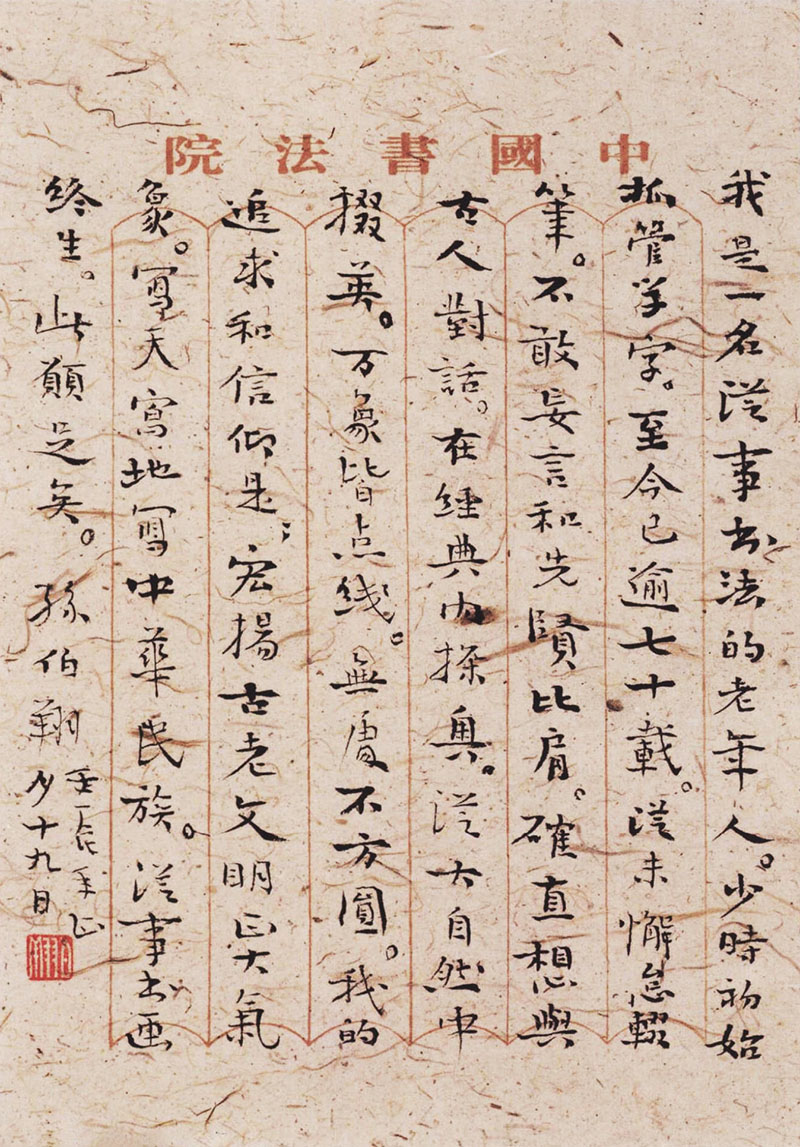 中國書法院
我是一名従事书法的老年人。少時初始
抓管学字。至今已逾七十載。従未懈怠輟
筆。不敢妄言和先賢比肩。確直想與
古人對話。在經典内探奥。従大自然中
掇英。万象皆点线。無處不方圓。我的
追求和信仰是；宏揚古老文明正大氣
象。寫天寫地寫中華民族。従事书画
终生。此願足矣。孫伯翔
壬辰年正
月十九日